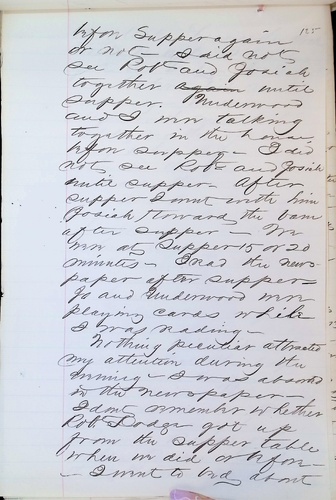 125
before supper again
or not - I did not
see Rob and Josiah
together again until
supper. Underwood
and I were talking
together in the house
before supper - I did
not see Rob and Josiah
until supper - After
supper I went with him
Josiah toward the barn
after supper - We
were at supper 15 or 20
minutes - I read the news-
paper after supper -
Jo and Underwood were
playing cards while
I was reading -
Nothing peculiar attracted
my attention during the
evening - I was absorbed
in the newspaper -
I dont remember whether
Rob Dodge got up
from the supper table
when we did or before
- I went to bed about